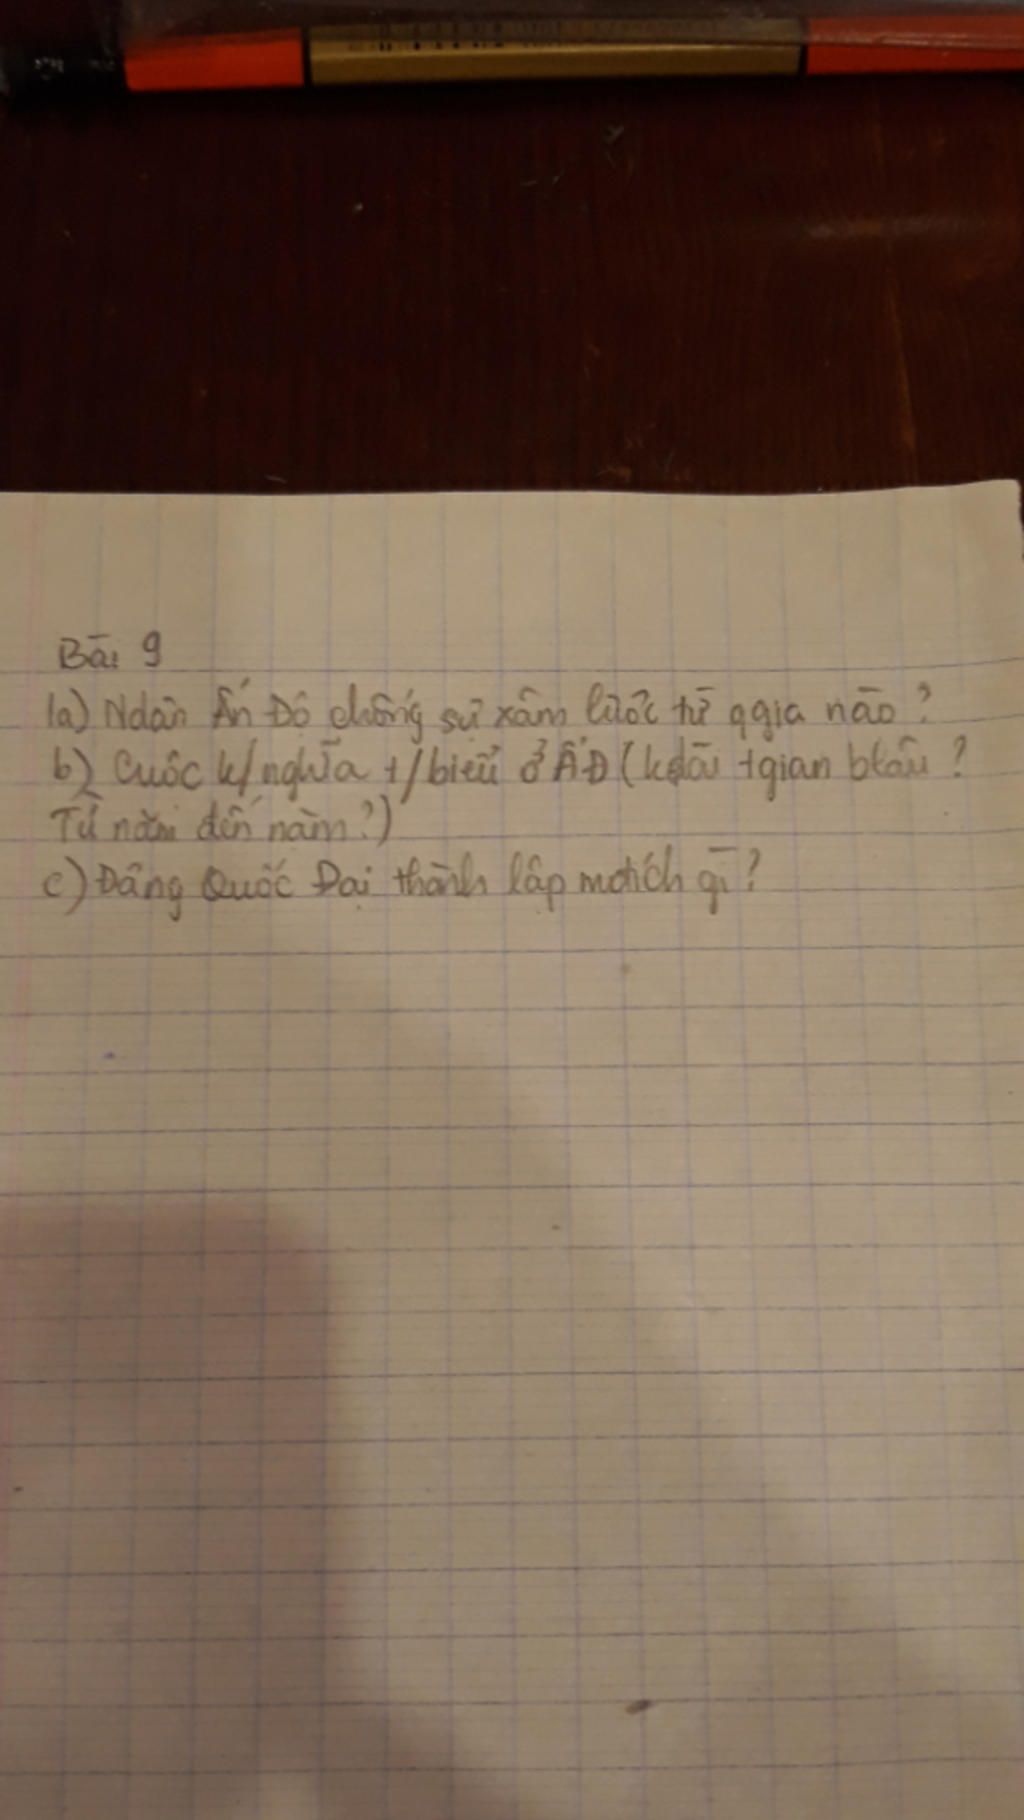 Bài 9
1a) Ndân Ấn Độ chống sự xâm lược từ qgia nào?
b) Cuộc k/nghĩa t/biểu ở ÂĐ (kdài tgian blâu?
Từ năm đến năm?)
c) Đảng Quốc Đại thành lập mđích gì?